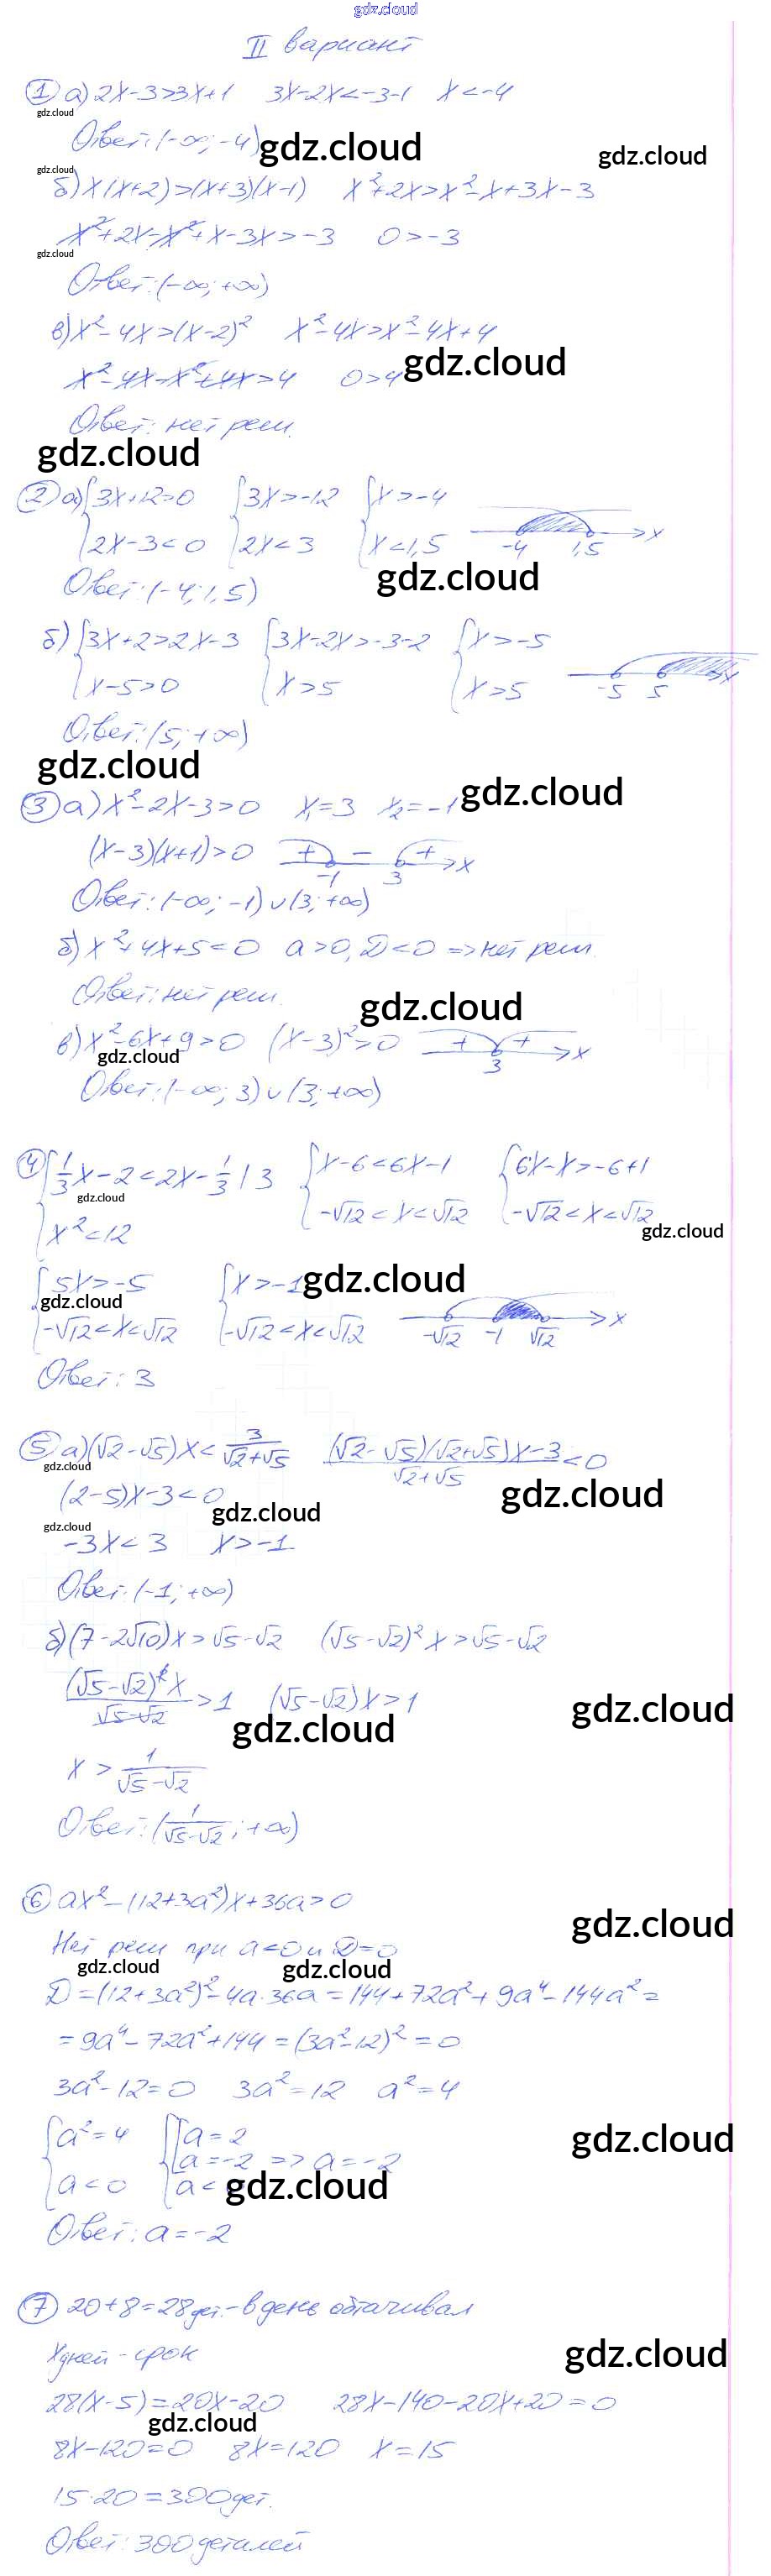 gdz.cloud
II вариант
① а) 2x-3>3x+1 3x-2x<-3-1 x<-4
gdz.cloud
Ответ: (-∞; -4)
gdz.cloud
gdz.cloud
gdz.cloud
б) x(x+2)>(x+3)(x-1) x²+2x>x²-x+3x-3
x²+2x-x²+x-3x>-3 0>-3
gdz.cloud
Ответ: (-∞; +∞)
в) x²-4x>(x-2)² x²-4x>x²-4x+4
gdz.cloud
x²-4x-x²+4x>4 0>4
Ответ: нет реш.
gdz.cloud
② а) {3x+12>0 {3x>-12 {x>-4
2x-3<0 2x<3 x<1,5 -4 1,5 x
gdz.cloud
Ответ: (-4; 1,5)
б) {3x+2>2x-3 {3x-2x>-3-2 {x>-5
x-5>0 x>5 x>5 -5 5 x
Ответ: (5; +∞)
gdz.cloud
gdz.cloud
③ а) x²-2x-3>0 x₁=3 x₂=-1
(x-3)(x+1)>0 + - + -1 3 x
Ответ: (-∞; -1)∪(3; +∞)
б) x²+4x+5<0 a>0, D<0 => нет реш.
Ответ: нет реш.
gdz.cloud
в) x²-6x+9>0 (x-3)²>0 + + 3 x
gdz.cloud
Ответ: (-∞; 3)∪(3; +∞)
④ {1/3x-2<2x-1/3 |·3 {x-6<6x-1 {6x-x>-6+1
gdz.cloud
x²<12 -√12<x<√12 -√12<x<√12
gdz.cloud
{5x>-5 {x>-1
gdz.cloud
gdz.cloud
-√12<x<√12 -√12<x<√12 -√12 -1 √12 x
Ответ: 3
⑤ а) (√2-√5)x<3/(√2+√5) ((√2-√5)(√2+√5)x-3)/(√2+√5)<0
gdz.cloud
(2-5)x-3<0
gdz.cloud
gdz.cloud
gdz.cloud
-3x<3 x>-1
Ответ: (-1; +∞)
б) (7-2√10)x>√5-√2 (√5-√2)²x>√5-√2
(√5-√2)²x/(√5-√2)>1 (√5-√2)x>1
gdz.cloud
gdz.cloud
x>1/(√5-√2)
Ответ: (1/(√5-√2); +∞)
⑥ ax²-(12+3a²)x+36a>0
gdz.cloud
Нет реш при a<0 и D=0
gdz.cloud
gdz.cloud
D=(12+3a²)²-4a·36a=144+72a²+9a⁴-144a²=
=9a⁴-72a²+144=(3a²-12)²=0
3a²-12=0 3a²=12 a²=4
{a²=4 {[a=2
gdz.cloud
a=-2 => a=-2
a<0 a<
gdz.cloud
Ответ: a=-2
⑦ 20+8=28дет.-в день обтачивал
gdz.cloud
x дней - срок
28(x-5)=20x-20 28x-140-20x+20=0
gdz.cloud
8x-120=0 8x=120 x=15
15·20=300дет.
Ответ: 300 деталей